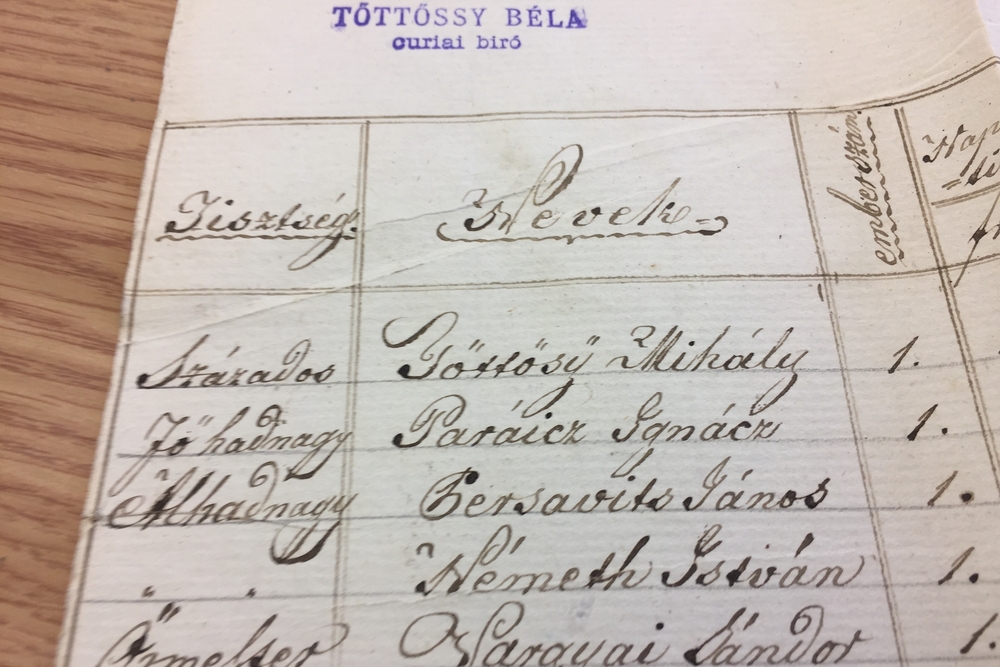 TŐTTŐSSY BÉLA
curiai biró
Tisztség. Nevek= emberszám.
Százados Tőttősÿ Mihály 1.
Fő hadnagy Paráicz Ignácz 1.
Alhadnagy Bersavits János 1.
" " Németh István 1.
Őrmester Sándor 1.